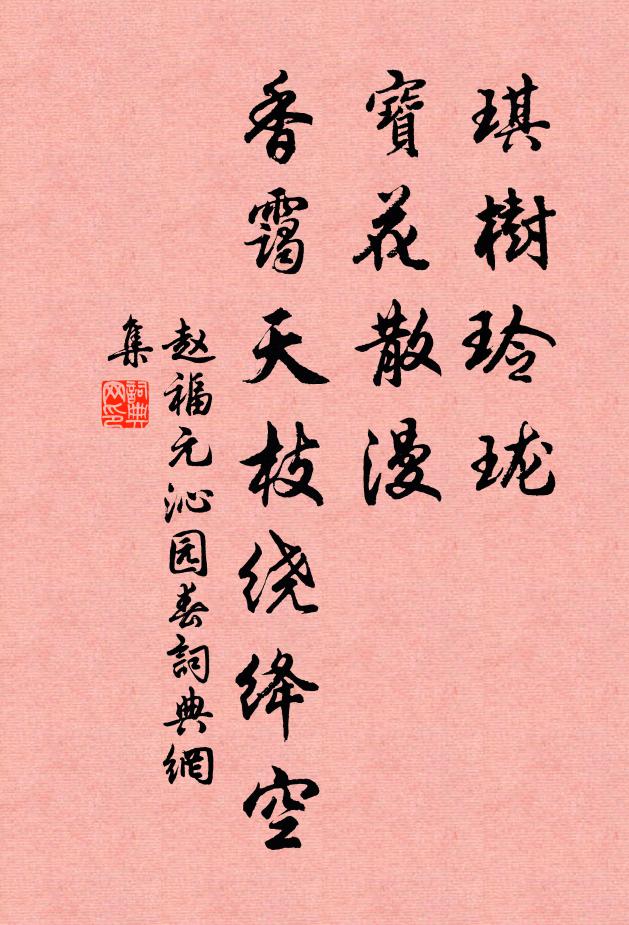 琪樹玲珑
寶花散漫
香靄天枝绕绛空
赵福元沁园春詞典網
集
詞典网印